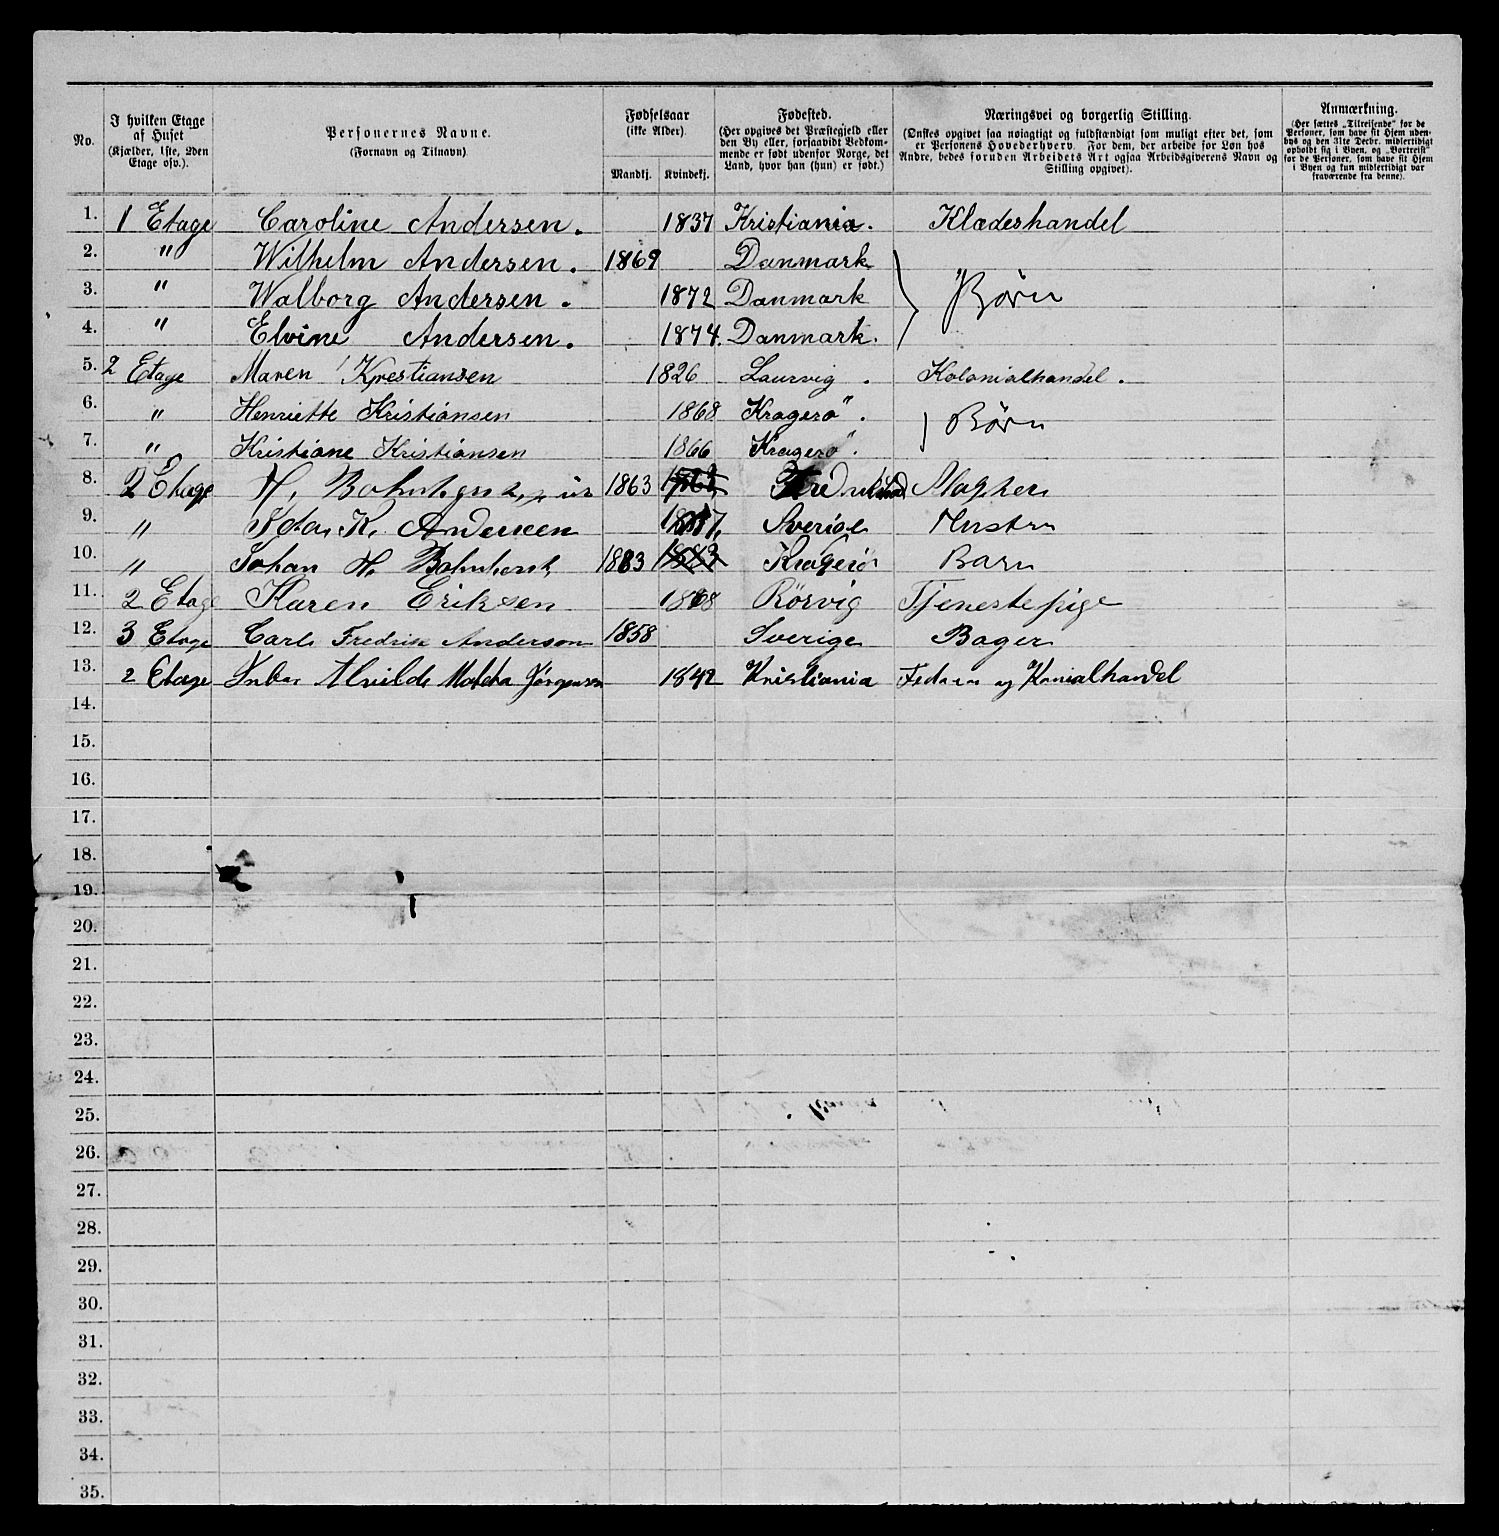 No.
I hvilken Etage af Huset (Kjælder, 1ste, 2den Etage osv.).
Personernes Navne. (Fornavn og Tilnavn).
Fødselsaar (ikke Alder).
Mandkj. Kvindekj.
Fødested. (Her opgives det Præstegjeld eller den By eller, forsaavidt Vedkommende er født udenfor Norge, det Land, hvor han (hun) er født.)
Næringsvei og borgerlig Stilling. (Ønskes opgivet saa nøiagtigt og fuldstændigt som muligt efter det, som er Personens Hovederhverv. For dem, der arbeide for Løn hos Andre, bedes foruden Arbeidets Art ogsaa Arbeidsgiverens Navn og Stilling opgivet).
Anmærkning. (Her sættes „Tilreisende“ for de Personer, som have sit Hjem udenbys og den 31te Decbr. midlertidigt opholdt sig i Byen, og „Bortreist“ for de Personer, som have sit Hjem i Byen og kun midlertidigt var fraværende fra denne).
1. 1 Etage Caroline Andersen. 1837 Kristiania. Klædeshandel
2. " Wilhelm Andersen. 1869 Danmark
3. " Walborg Andersen. 1872 Danmark } Børn
4. " Elvine Andersen. 1874. Danmark.
5. 2 Etage Maren Krestiansen 1826 Laurvig. Kolonialhandel.
6. " Henriette Kristiansen 1868 Kragerø". } Børn
7. " Kristiane Kristiansen 1866 Kragerø".
8. 2 Etage H. 1863
9. " K. Sverige Hustru
10. " Johan H. 1883 1883 Kragerø Barn
11. 2 Etage Karen Eriksen 1868 Rörvig Tjenestepige
12. 3 Etage Carl Fredrik Anderson 1858 Sverige Bager
13. 2 Etage Jørgensen 1842 Kristiania og
14.
15.
16.
17.
18.
19.
20.
21.
22.
23.
24.
25.
26.
27.
28.
29.
30.
31.
32.
33.
34.
35.